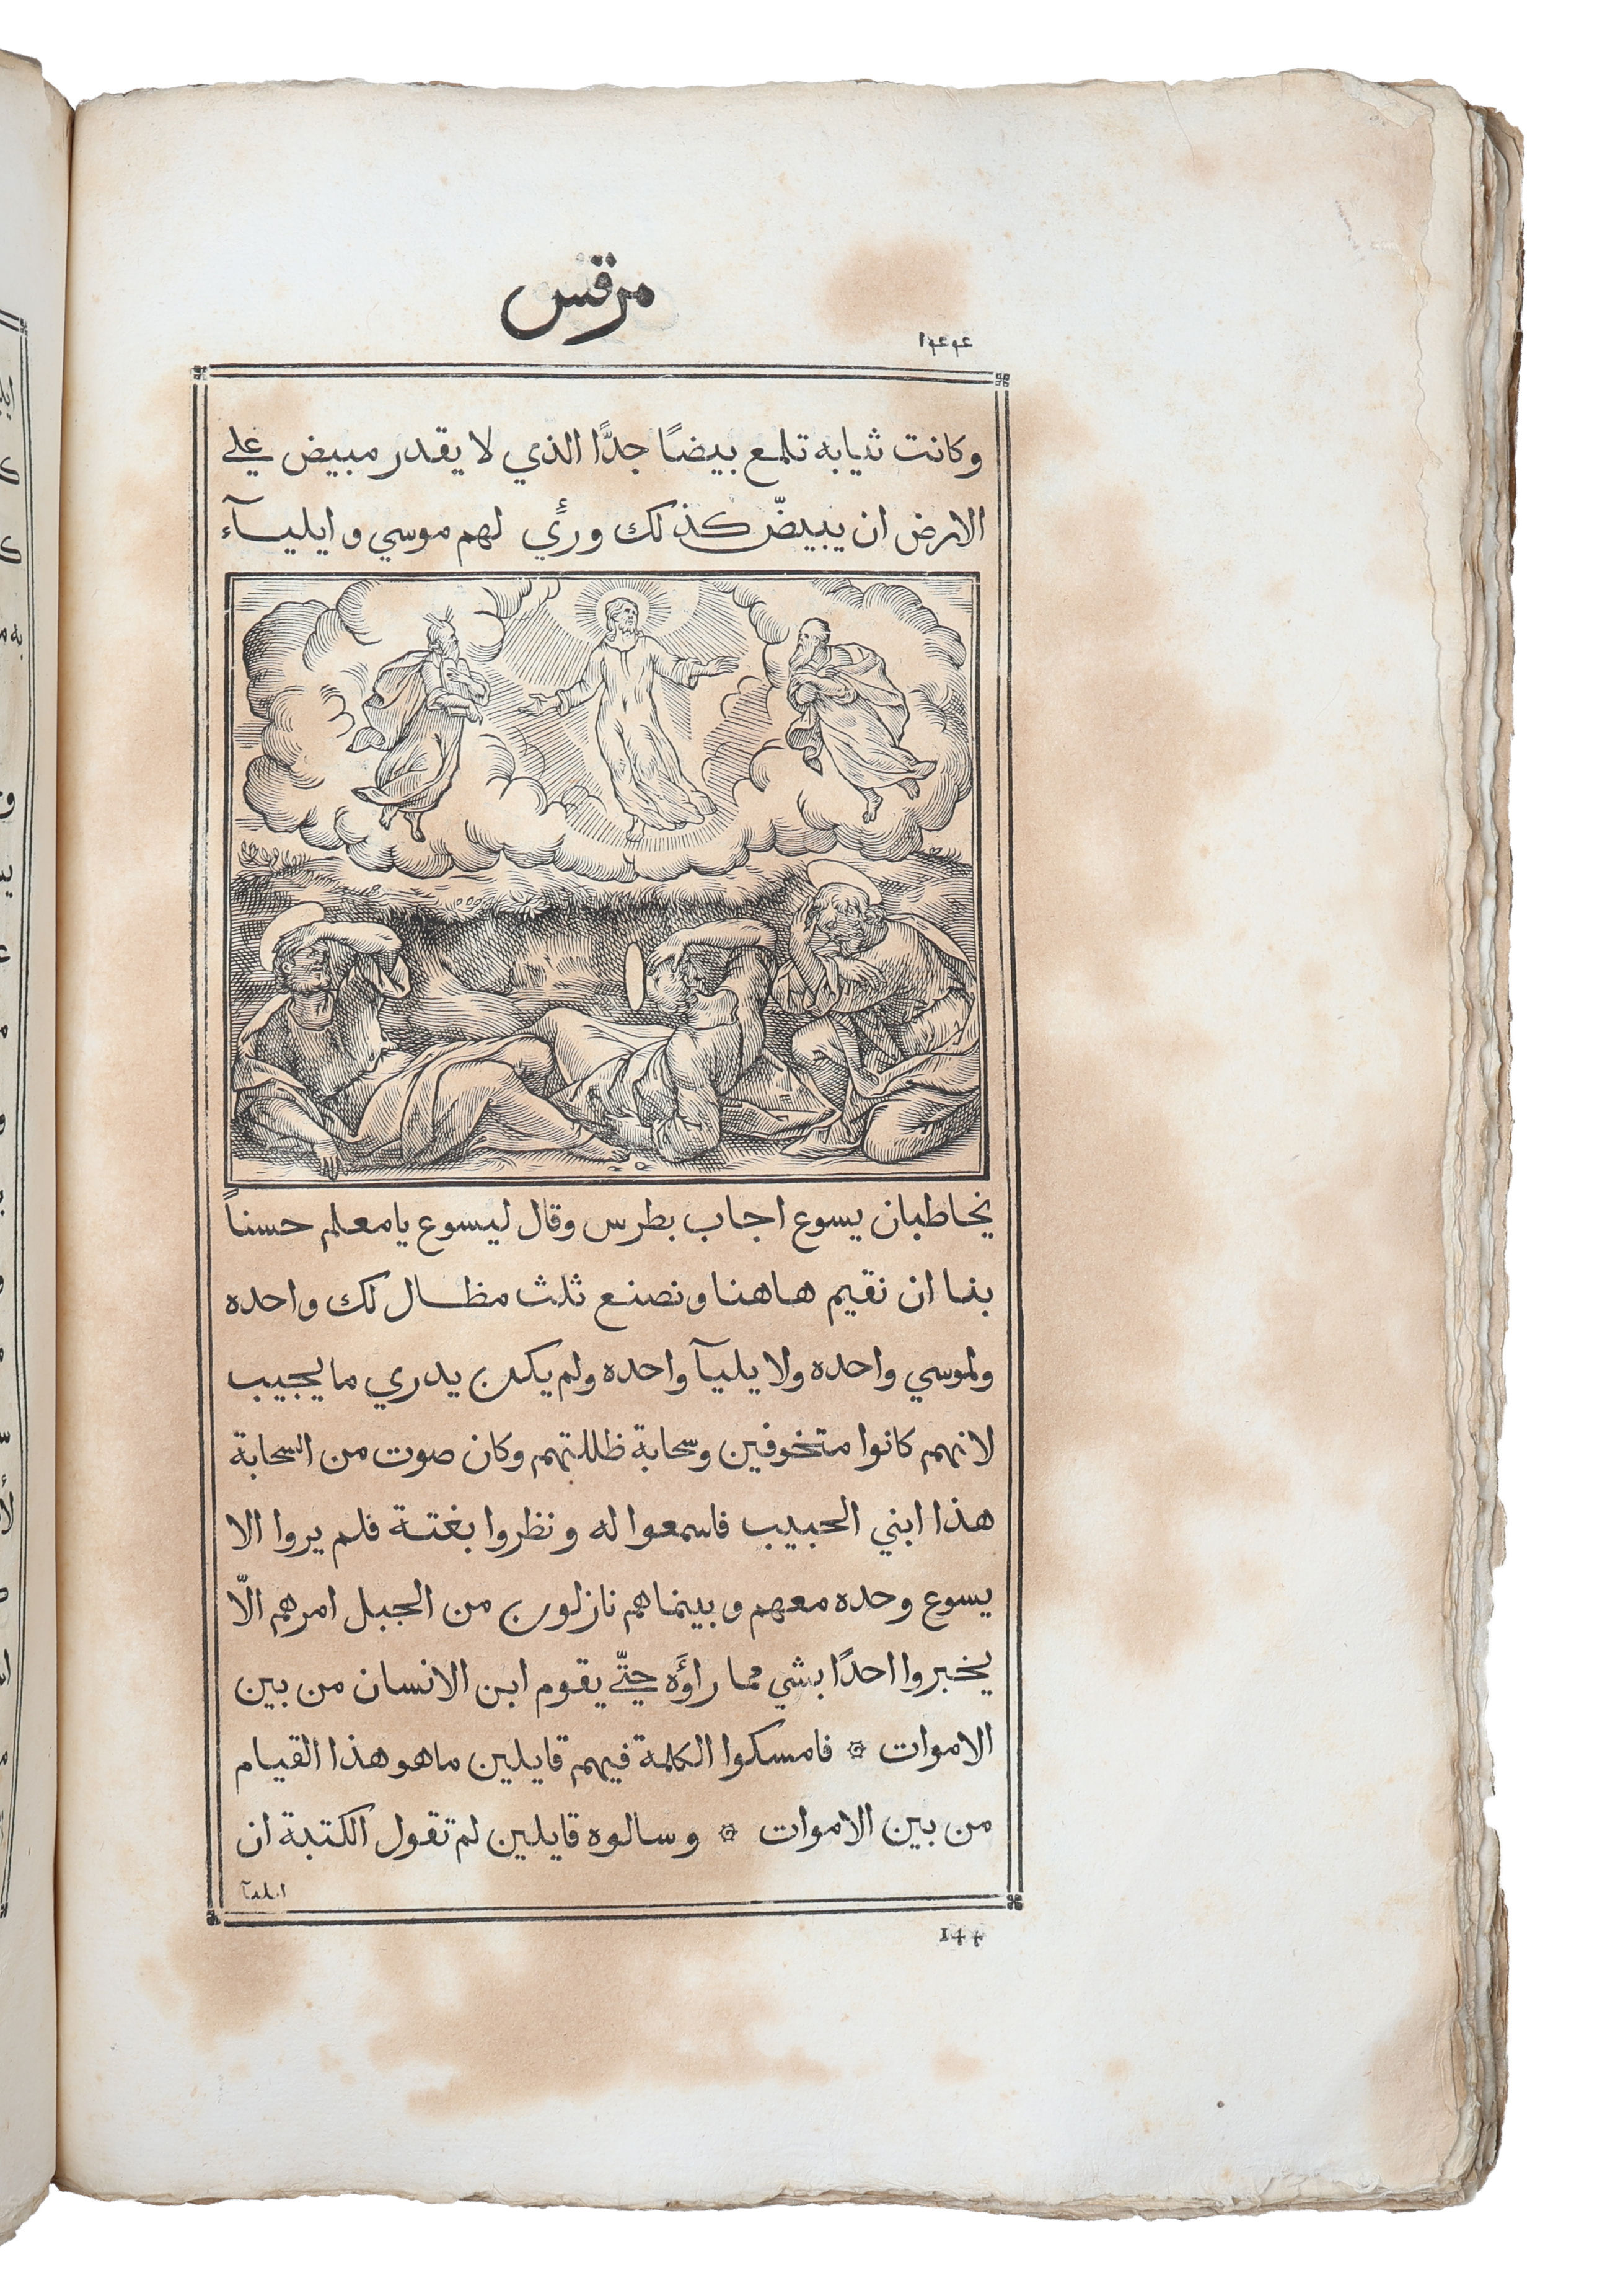 مرقس
وكانت ثيابه تلمع بيضًا جدًّا الذي لا يقدر مبيض علي
الارض ان يبيضّ كذلك ورئي لهم موسي وايليآء
يخاطبان يسوع اجاب بطرس وقال ليسوع يا معلم حسناً
بنا ان نقيم هاهنا ونصنع ثلث مظال لك واحده
ولموسي واحده ولايليآ واحده ولم يكن يدري ما يجيب
لانهم كانوا متخوفين وسحابة ظللتهم وكان صوت من السحابة
هذا ابني الحبيب فاسمعوا له ونظروا بغتة فلم يروا الا
يسوع وحده معهم وبينما هم نازلون من الجبل امرهم الّا
يخبروا احدًا بشي مما راؤه حتّي يقوم ابن الانسان من بين
الاموات ۞ فامسكوا الكلمة فيهم قايلين ما هو هذا القيام
من بين الاموات ۞ وسالوه قايلين لم تقول الكتبة ان
ايليآ